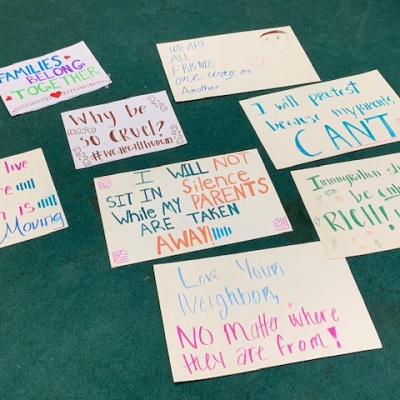 FAMILIES
BELONG
TOGETHER
WE ARE
ALL
FRIENDS
one way or
Another
Why be
SO CRUEL?
I will protest
because my Parents
CANT
live
is
Moving
I WILL NOT
SIT IN Silence
While MY PARENTS
ARE TAKEN
AWAY!!!!!
Immigration
be
RICH!
Love Your
Neighbor,
NO Matter where
they are from!